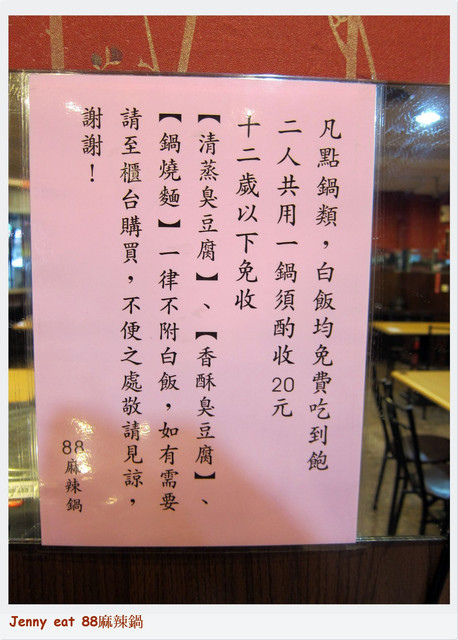 凡點鍋類，白飯均免費吃到飽
二人共用一鍋須酌收20元
十二歲以下免收
【清蒸臭豆腐】、【香酥臭豆腐】、
【鍋燒麵】一律不附白飯，如有需要
請至櫃台購買，不便之處敬請見諒，
謝謝！
88麻辣鍋
Jenny eat 88麻辣鍋